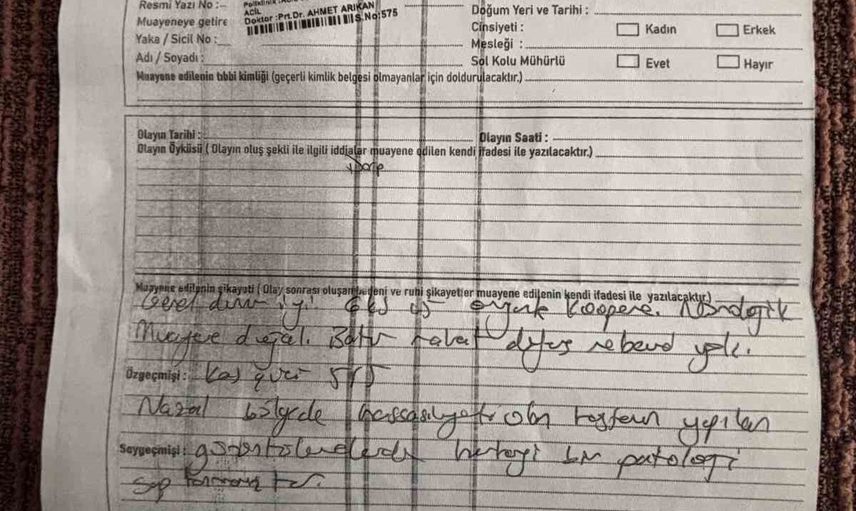 Resmi Yazı No :
ACİL
Doktor :Prf.Dr. AHMET ARIKAN
S.No:575
Muayeneye getire
Yaka / Sicil No :
Adı / Soyadı :
Doğum Yeri ve Tarihi :
Cinsiyeti : Kadın Erkek
Mesleği :
Sol Kolu Mühürlü Evet Hayır
Muayene edilenin tıbbi kimliği (geçerli kimlik belgesi olmayanlar için doldurulacaktır.)
Olayın Tarihi : Olayın Saati :
Olayın Öyküsü ( Olayın oluş şekli ile ilgili iddialar muayene edilen kendi ifadesi ile yazılacaktır.)
darp
Muayene edilenin şikayeti ( Olay sonrası oluşan bedeni ve ruhi şikayetler muayene edilenin kendi ifadesi ile yazılacaktır.)
Genel durum iyi. GKS 15 oryante koopere. Nörolojik
Muayene doğal. Batın rahat defans rebound yok.
Özgeçmişi : Kas gücü 5/5
Nazal bölgede hassasiyeti olan yapılan
Soygeçmişi : görüntülemelerde herhangi bir patoloji